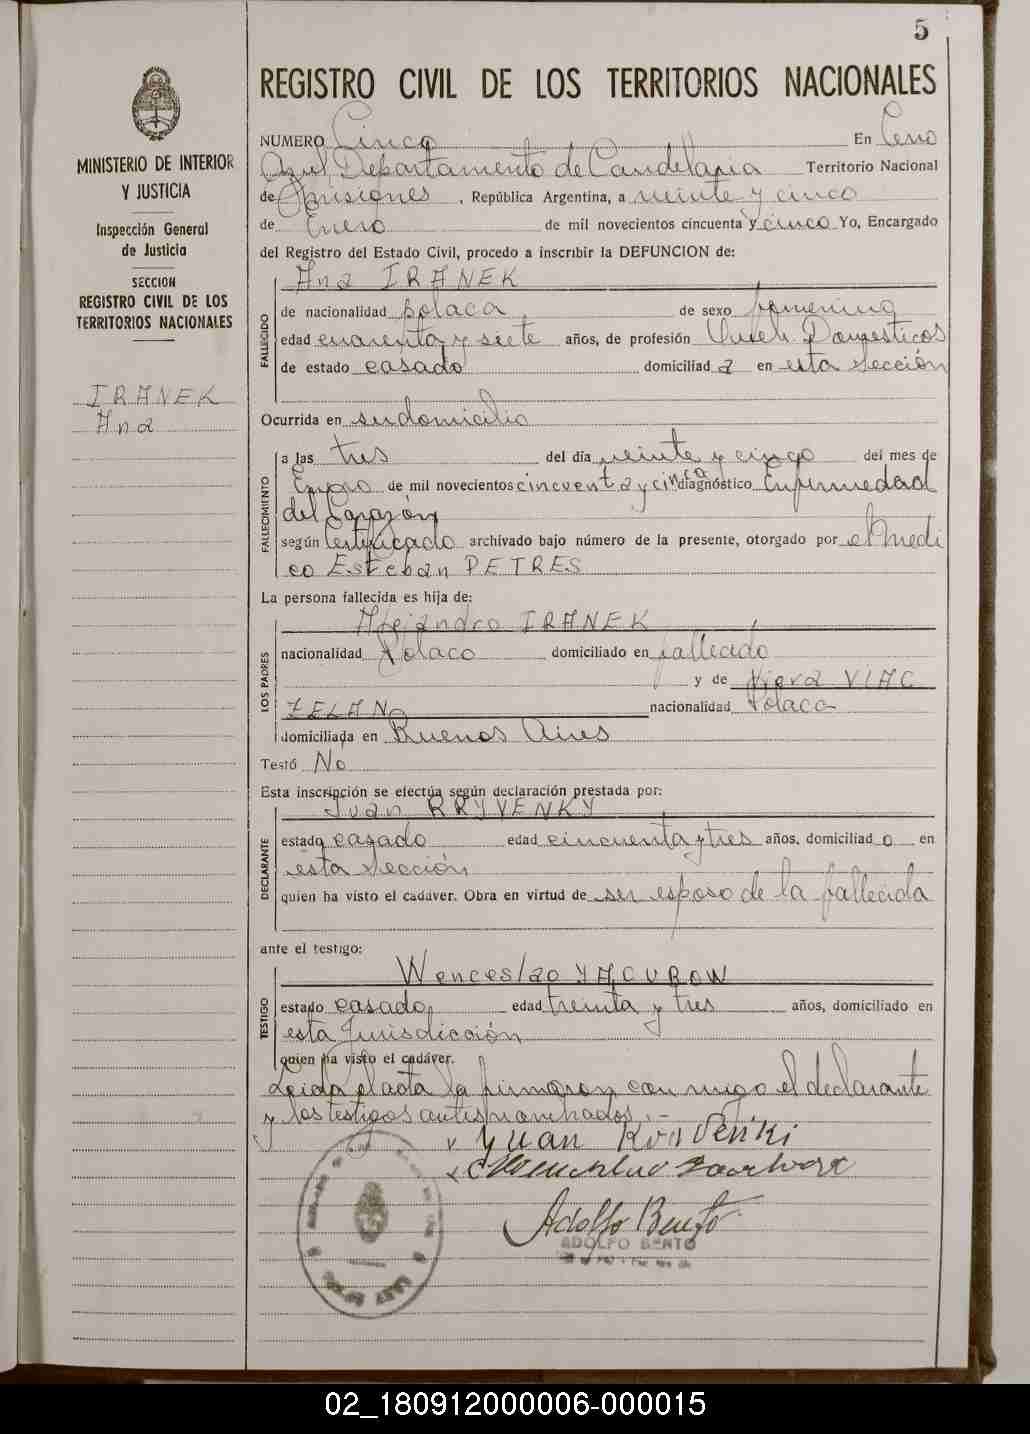 5
REGISTRO CIVIL DE LOS TERRITORIOS NACIONALES
MINISTERIO DE INTERIOR
Y JUSTICIA
Inspección General
de Justicia
SECCION
REGISTRO CIVIL DE LOS
TERRITORIOS NACIONALES
IRANEK
Ana
NUMERO Cinco En Cerro
Azul Departamento de Candelaria Territorio Nacional
de Misiones, República Argentina, a veinte y cinco
de Enero de mil novecientos cincuenta y cinco Yo, Encargado
del Registro del Estado Civil, procedo a inscribir la DEFUNCION de:
Ana IRANEK
FALLECIDO
de nacionalidad polaca de sexo femenino
edad cuarenta y siete años, de profesión Queh. Domesticos
de estado casado domiciliad a en esta sección
Ocurrida en su domicilio
FALLECIMIENTO
a las tres del día veinte y cinco del mes de
Enero de mil novecientos cincuenta y cinco diagnóstico Enfermedad
del Corazón
según Certificado archivado bajo número de la presente, otorgado por el medi
co Esteban PETRES
La persona fallecida es hija de:
LOS PADRES
Alejandro IRANEK
nacionalidad Polaco domiciliado en fallecido
y de
nacionalidad Polaca
domiciliada en Buenos Aires
Testó No
Esta inscripción se efectúa según declaración prestada por:
DECLARANTE
Juan KRYVENKY
estado casado edad cincuenta y tres años, domiciliad o en
esta sección
quien ha visto el cadáver. Obra en virtud de ser esposo de la fallecida
ante el testigo:
TESTIGO
Wenceslao YACUBOW
estado casado edad treinta y tres años, domiciliado en
esta Jurisdicción
quien ha visto el cadáver.
Leida el acta la firmaron con migo el declarante
y los testigos antes nombrados.-
Yuan
Adolfo Bento
ADOLFO BENTO
02_180912000006-000015